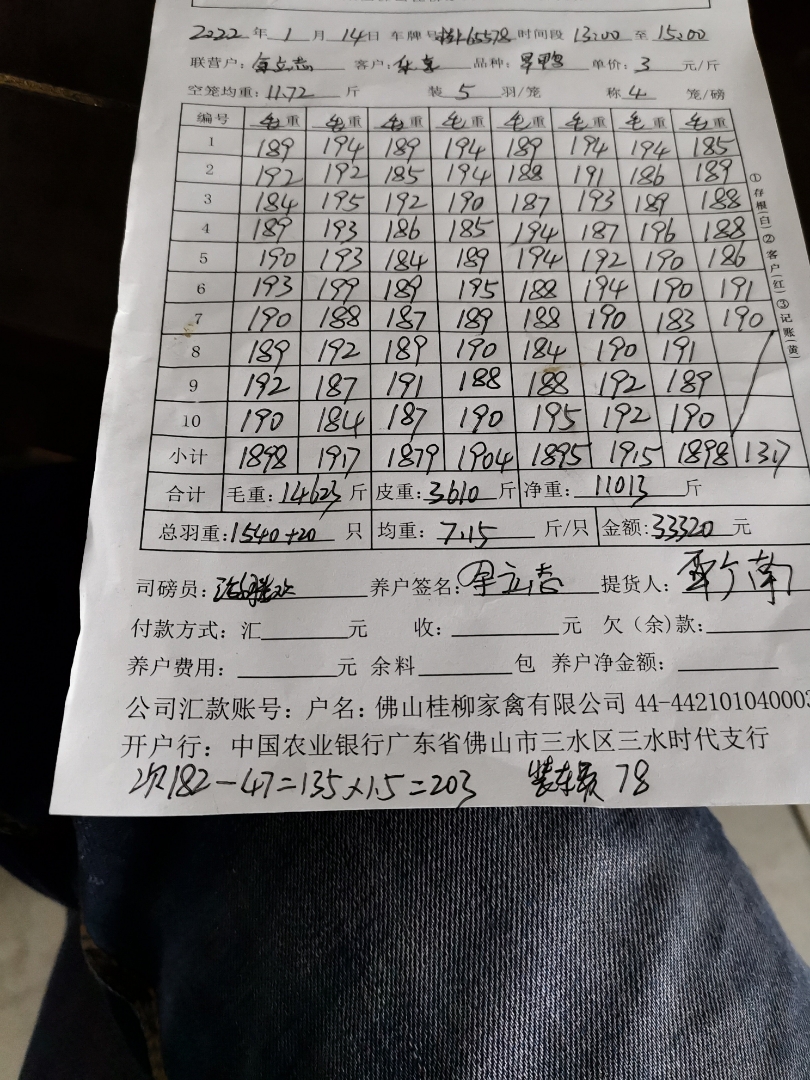 2022 年 1 月 14 日 车牌号 65578 时间段 13:00 至 15:00
联营户: 客户: 品种: 旱鸭 单价: 3 元/斤
空笼均重: 11.72 斤 装 5 羽/笼 称 4 笼/磅
编号 毛重 毛重 毛重 毛重 毛重 毛重 毛重 毛重
1 189 194 189 194 189 194 194 185
2 192 192 185 194 188 191 186 189
3 184 195 192 190 187 193 189 188
4 189 193 186 185 194 187 196 188
5 190 193 184 189 194 192 190 186
6 193 199 189 195 188 194 190 191
7 190 188 187 189 188 190 183 190
8 189 192 189 190 184 190 191
9 192 187 191 188 188 192 189
10 190 184 187 190 195 192 190
小计 1898 1917 1879 1904 1895 1915 1898 1317
合计 毛重: 14623 斤 皮重: 3610 斤 净重: 11013 斤
总羽重: 1540+20 只 均重: 7.15 斤/只 金额: 33320 元
①存根(白)②客户(红)③记账(黄)
司磅员: 养户签名: 提货人:
付款方式: 汇 元 收: 元 欠(余)款:
养户费用: 元 余料 包 养户净金额:
公司汇款账号: 户名: 佛山桂柳家禽有限公司 44-442101040003
开户行: 中国农业银行广东省佛山市三水区三水时代支行
182-47=135×1.5=203 装车员 78